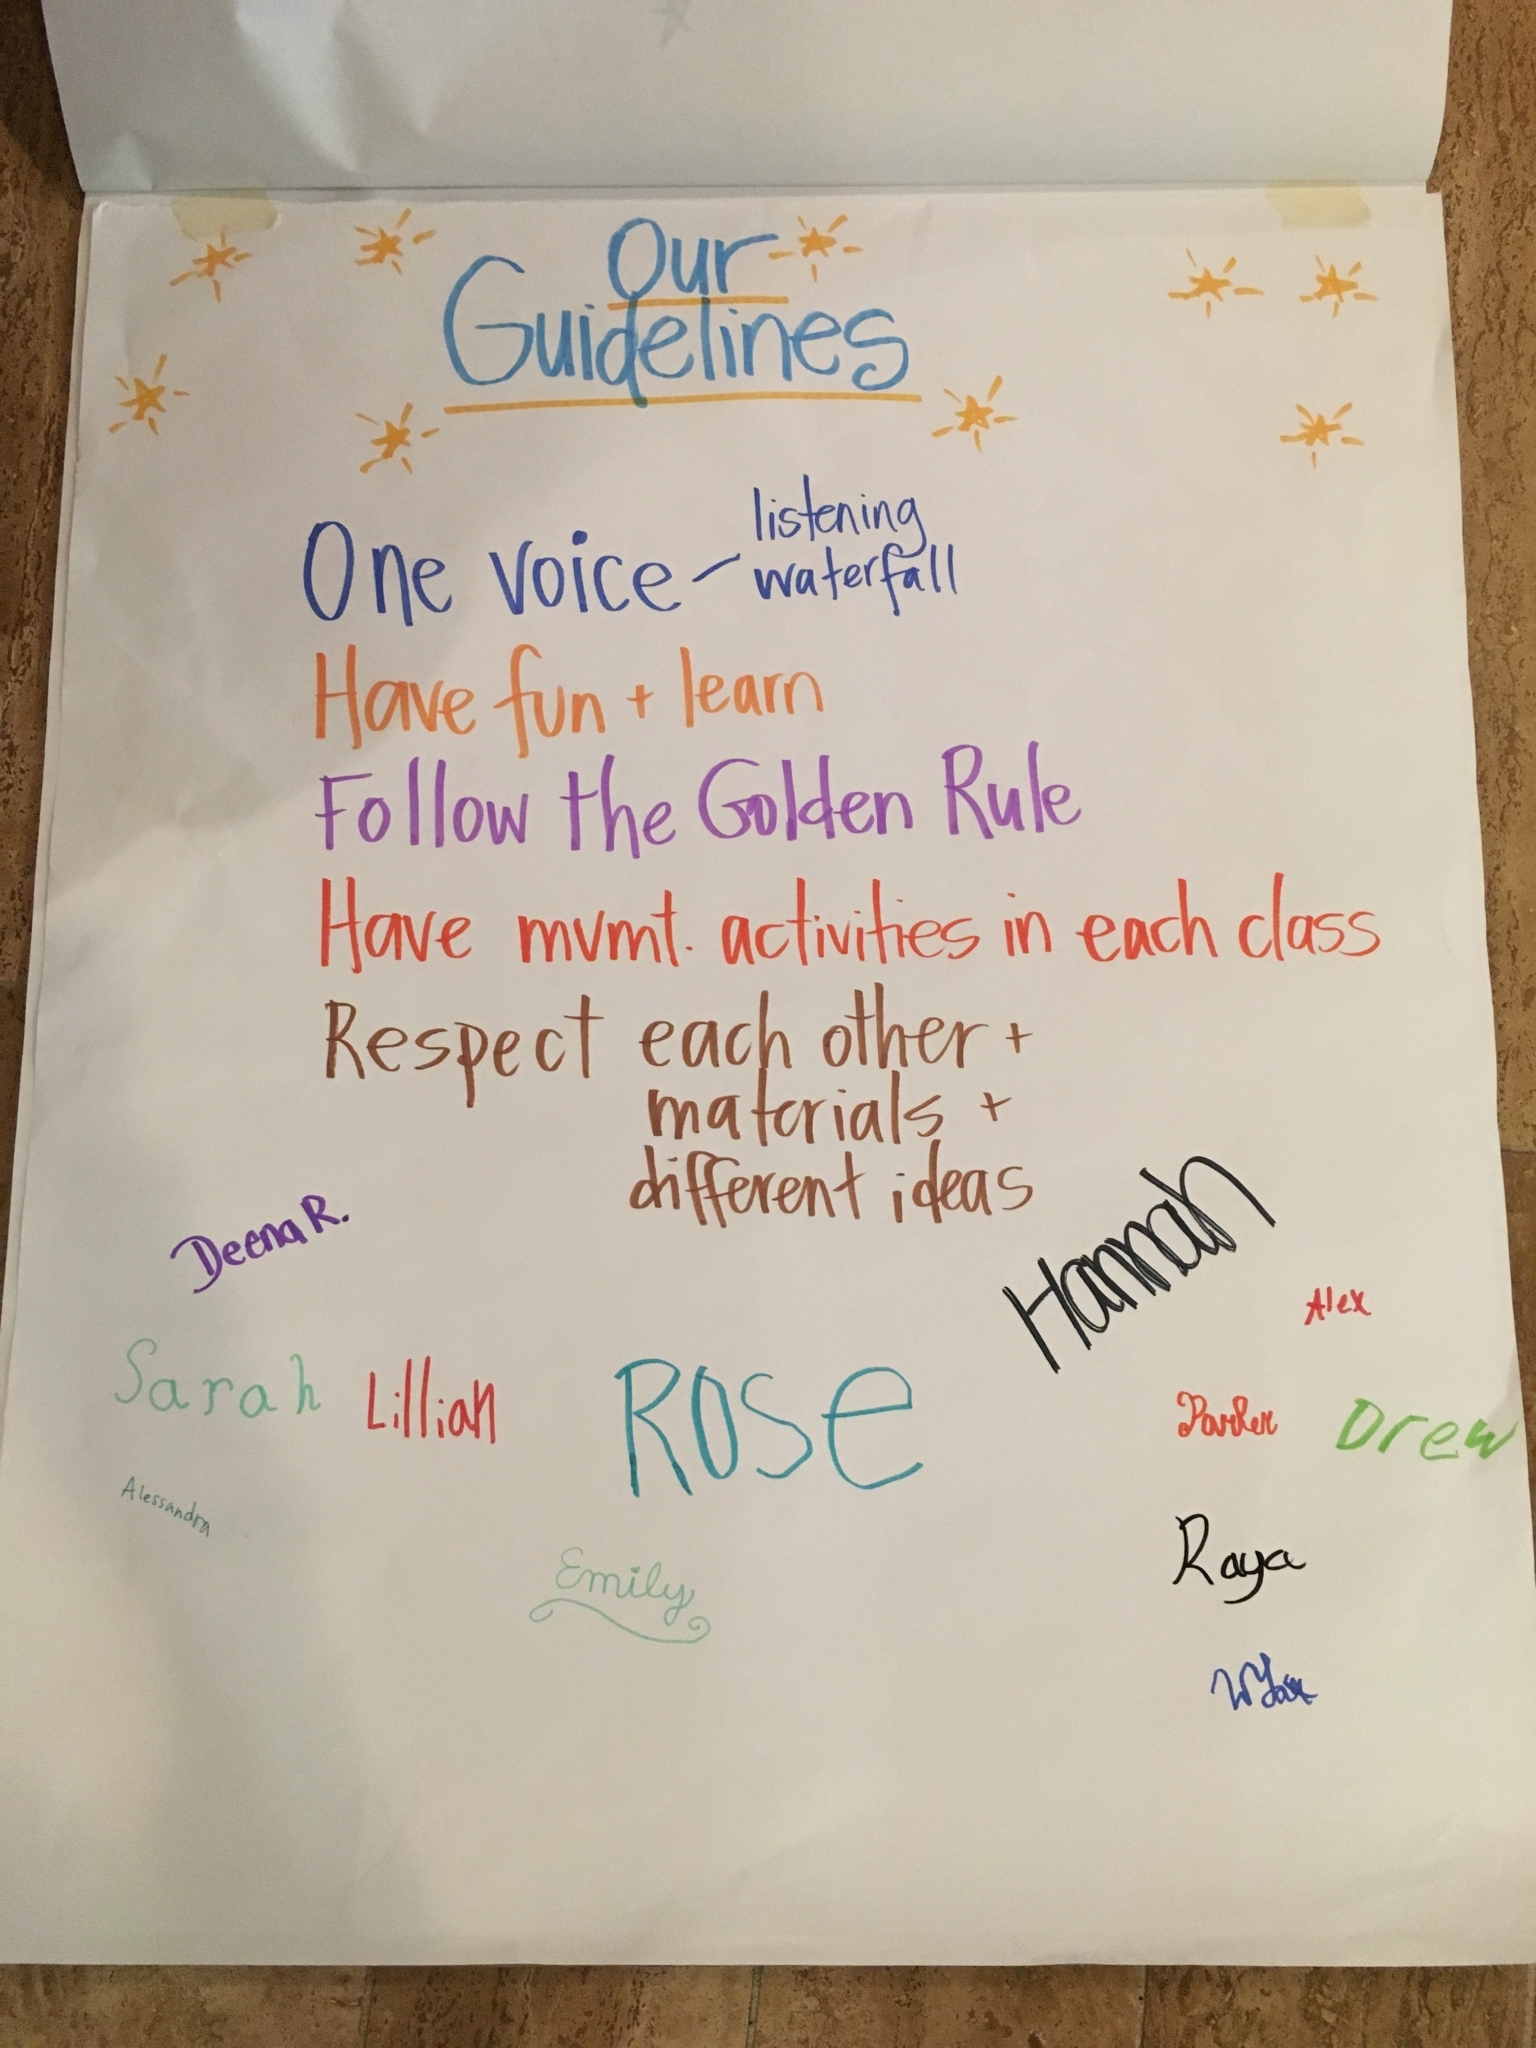 Our
Guidelines
One voice - listening
waterfall
Have fun + learn
Follow the Golden Rule
Have mvmt. activities in each class
Respect each other +
materials +
different ideas
Deena R.
Hannah
Alex
Sarah Lillian ROSe
Parker Drew
Alessandra
Emily
Raya